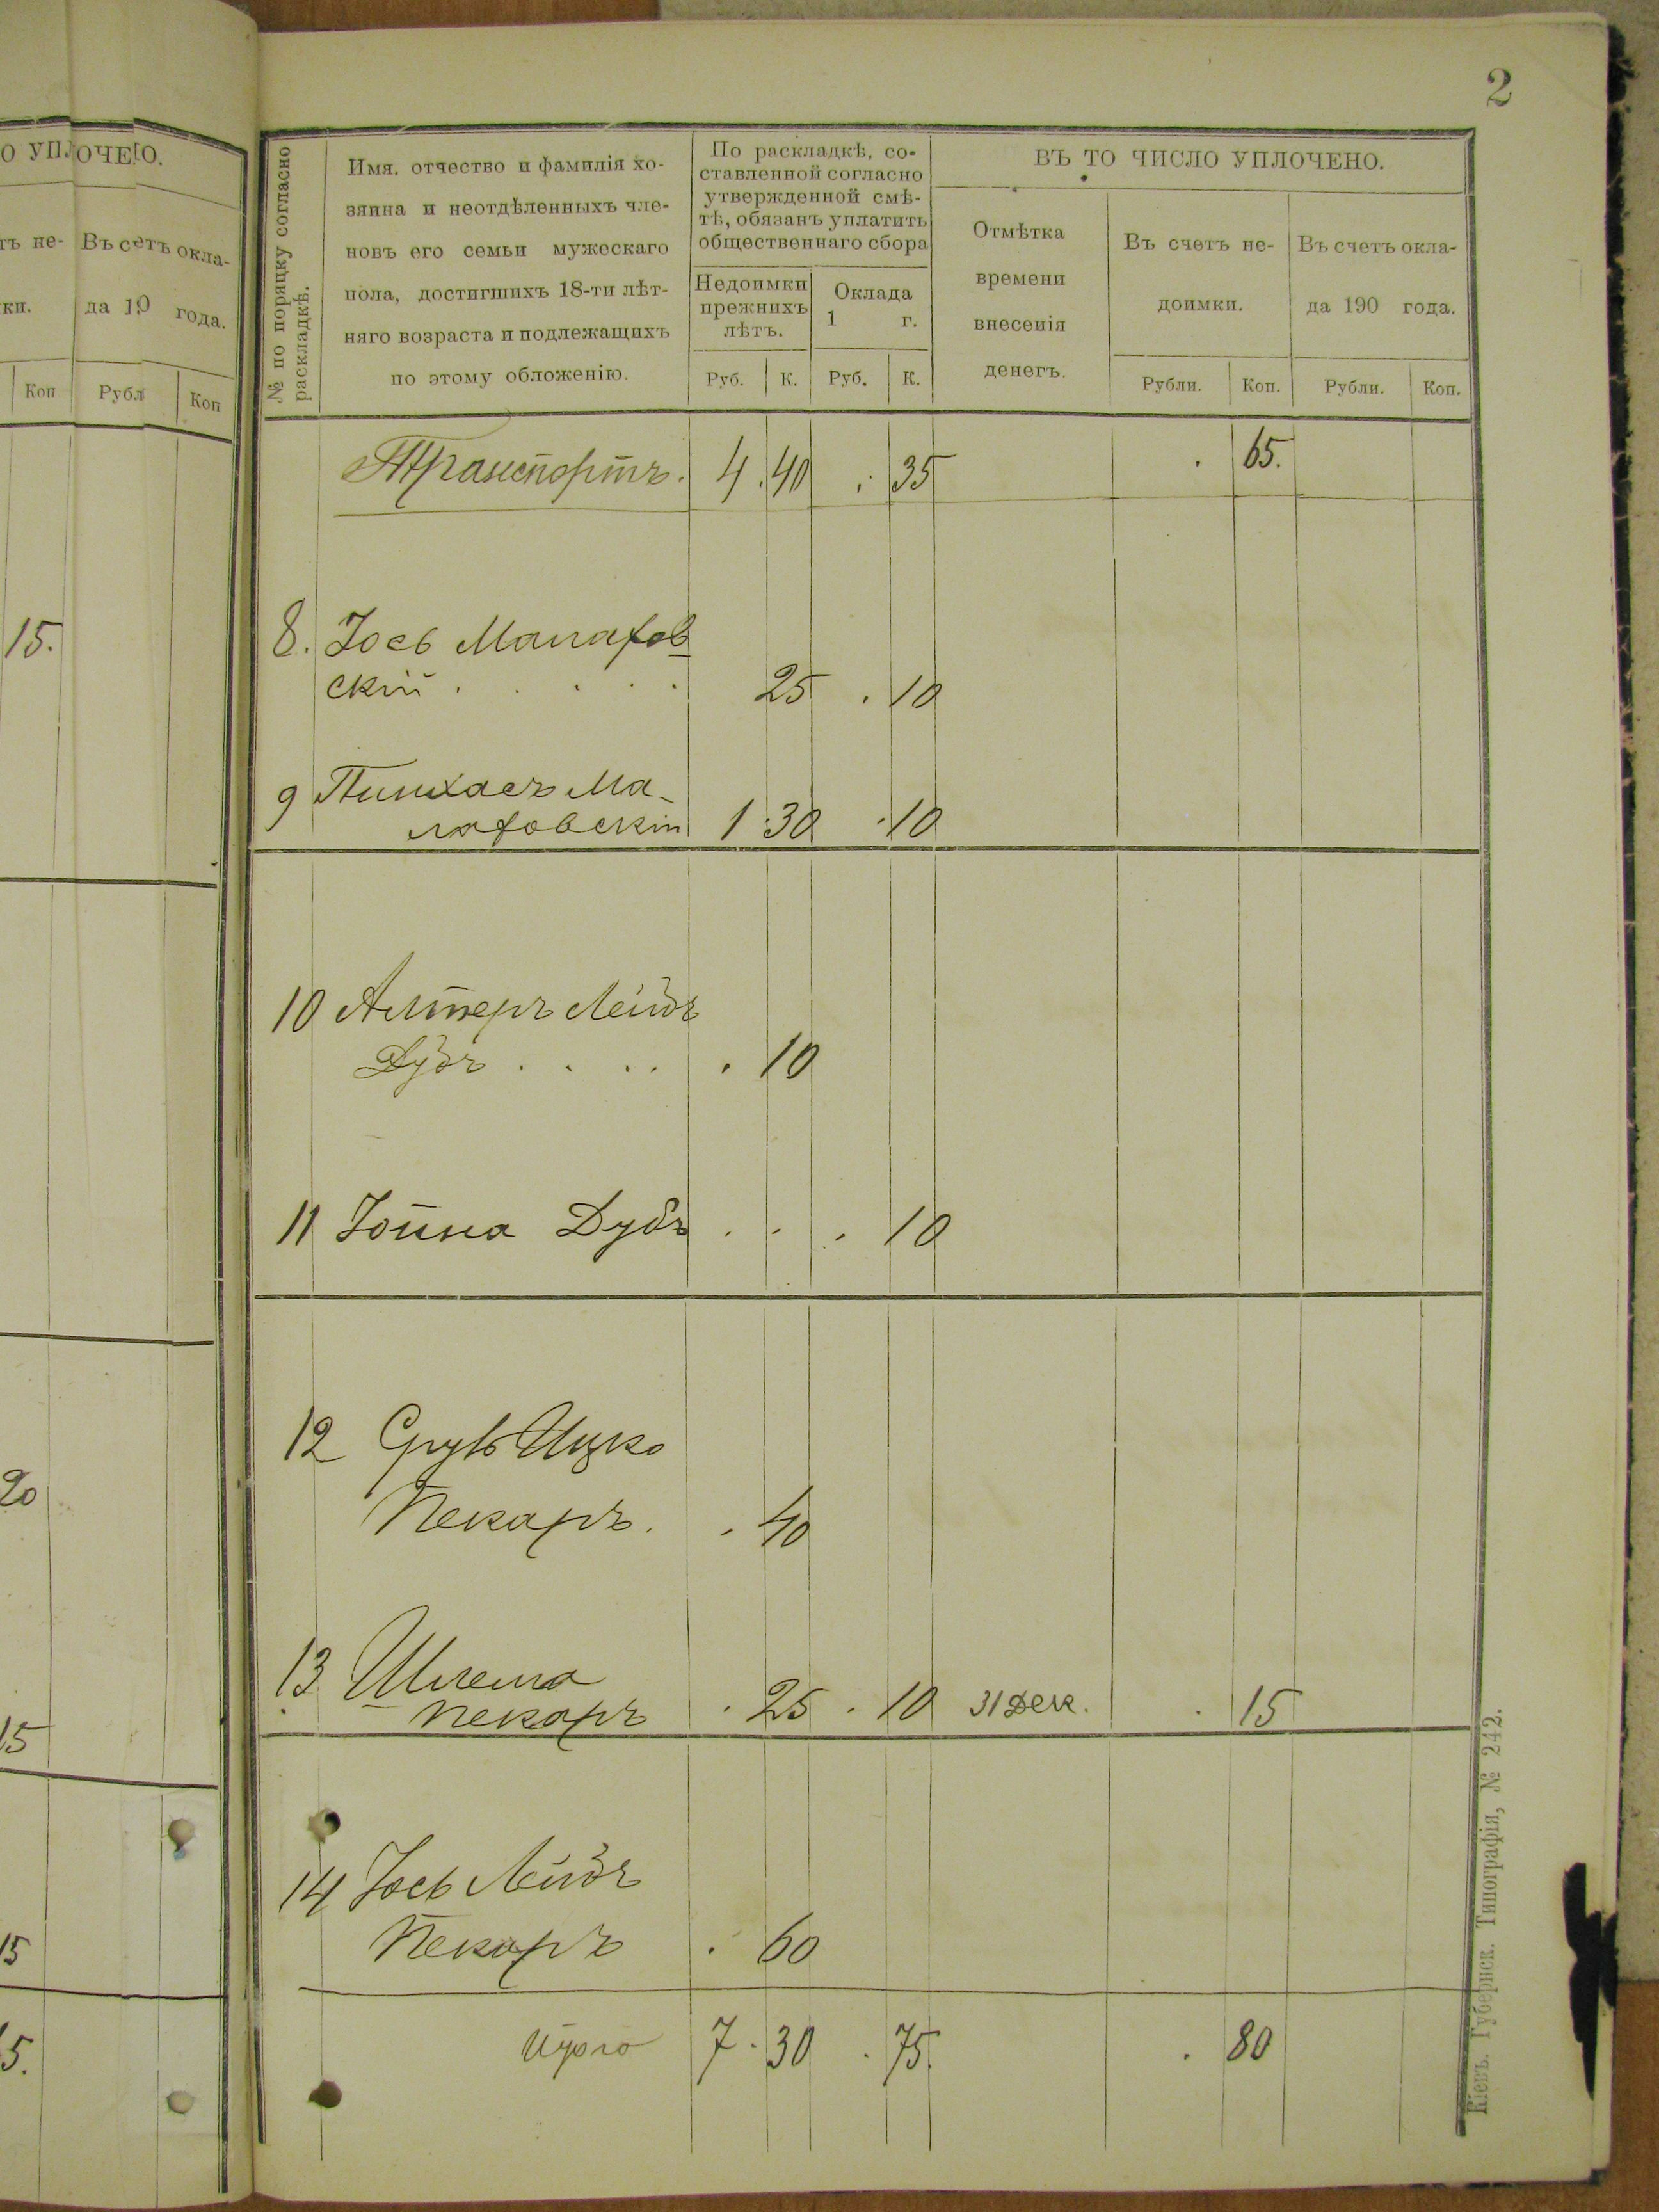 2
О УПЛОЧЕНО.
ть не-
Въ счетъ окла-
ки.
да 19 года.
Коп
Рубл
Коп
15.
20
15
15
5.
№ по порядку согласно
раскладкѣ.
Имя. отчество и фамилія хо-
зяина и неотдѣленныхъ чле-
новъ его семьи мужескаго
пола, достигшихъ 18-ти лѣт-
няго возраста и подлежащихъ
по этому обложенію.
По раскладкѣ, со-
ставленной согласно
утвержденной смѣ-
тѣ, обязанъ уплатить
общественнаго сбора
Недоимки
прежнихъ
лѣтъ.
Оклада
1 г.
Руб. К. Руб. К.
ВЪ ТО ЧИСЛО УПЛОЧЕНО.
Отмѣтка
времени
внесенія
денегъ.
Въ счетъ не-
доимки.
Въ счетъ окла-
да 190 года.
Рубли. Коп. Рубли. Коп.
Транспортъ. 4. 40 . 35 . 65.
8. Іось Малахов
скій . . . . 25 . 10
9 Пинхасъ Ма-
лаховскій 1 . 30 . 10
10 Алтеръ Лейбъ
Дубъ . . . . . 10
11 Іойна Дубъ . . . 10
12 Сруль Ицко
Пекаръ. . 40
13 Шлема
Пекаръ . 25 . 10 31 Дек. . 15
14 Іось Лейбъ
Пекаръ . 60
Итого 7. 30 . 75. . 80
Кіевъ. Губернск. Типографія, № 242.